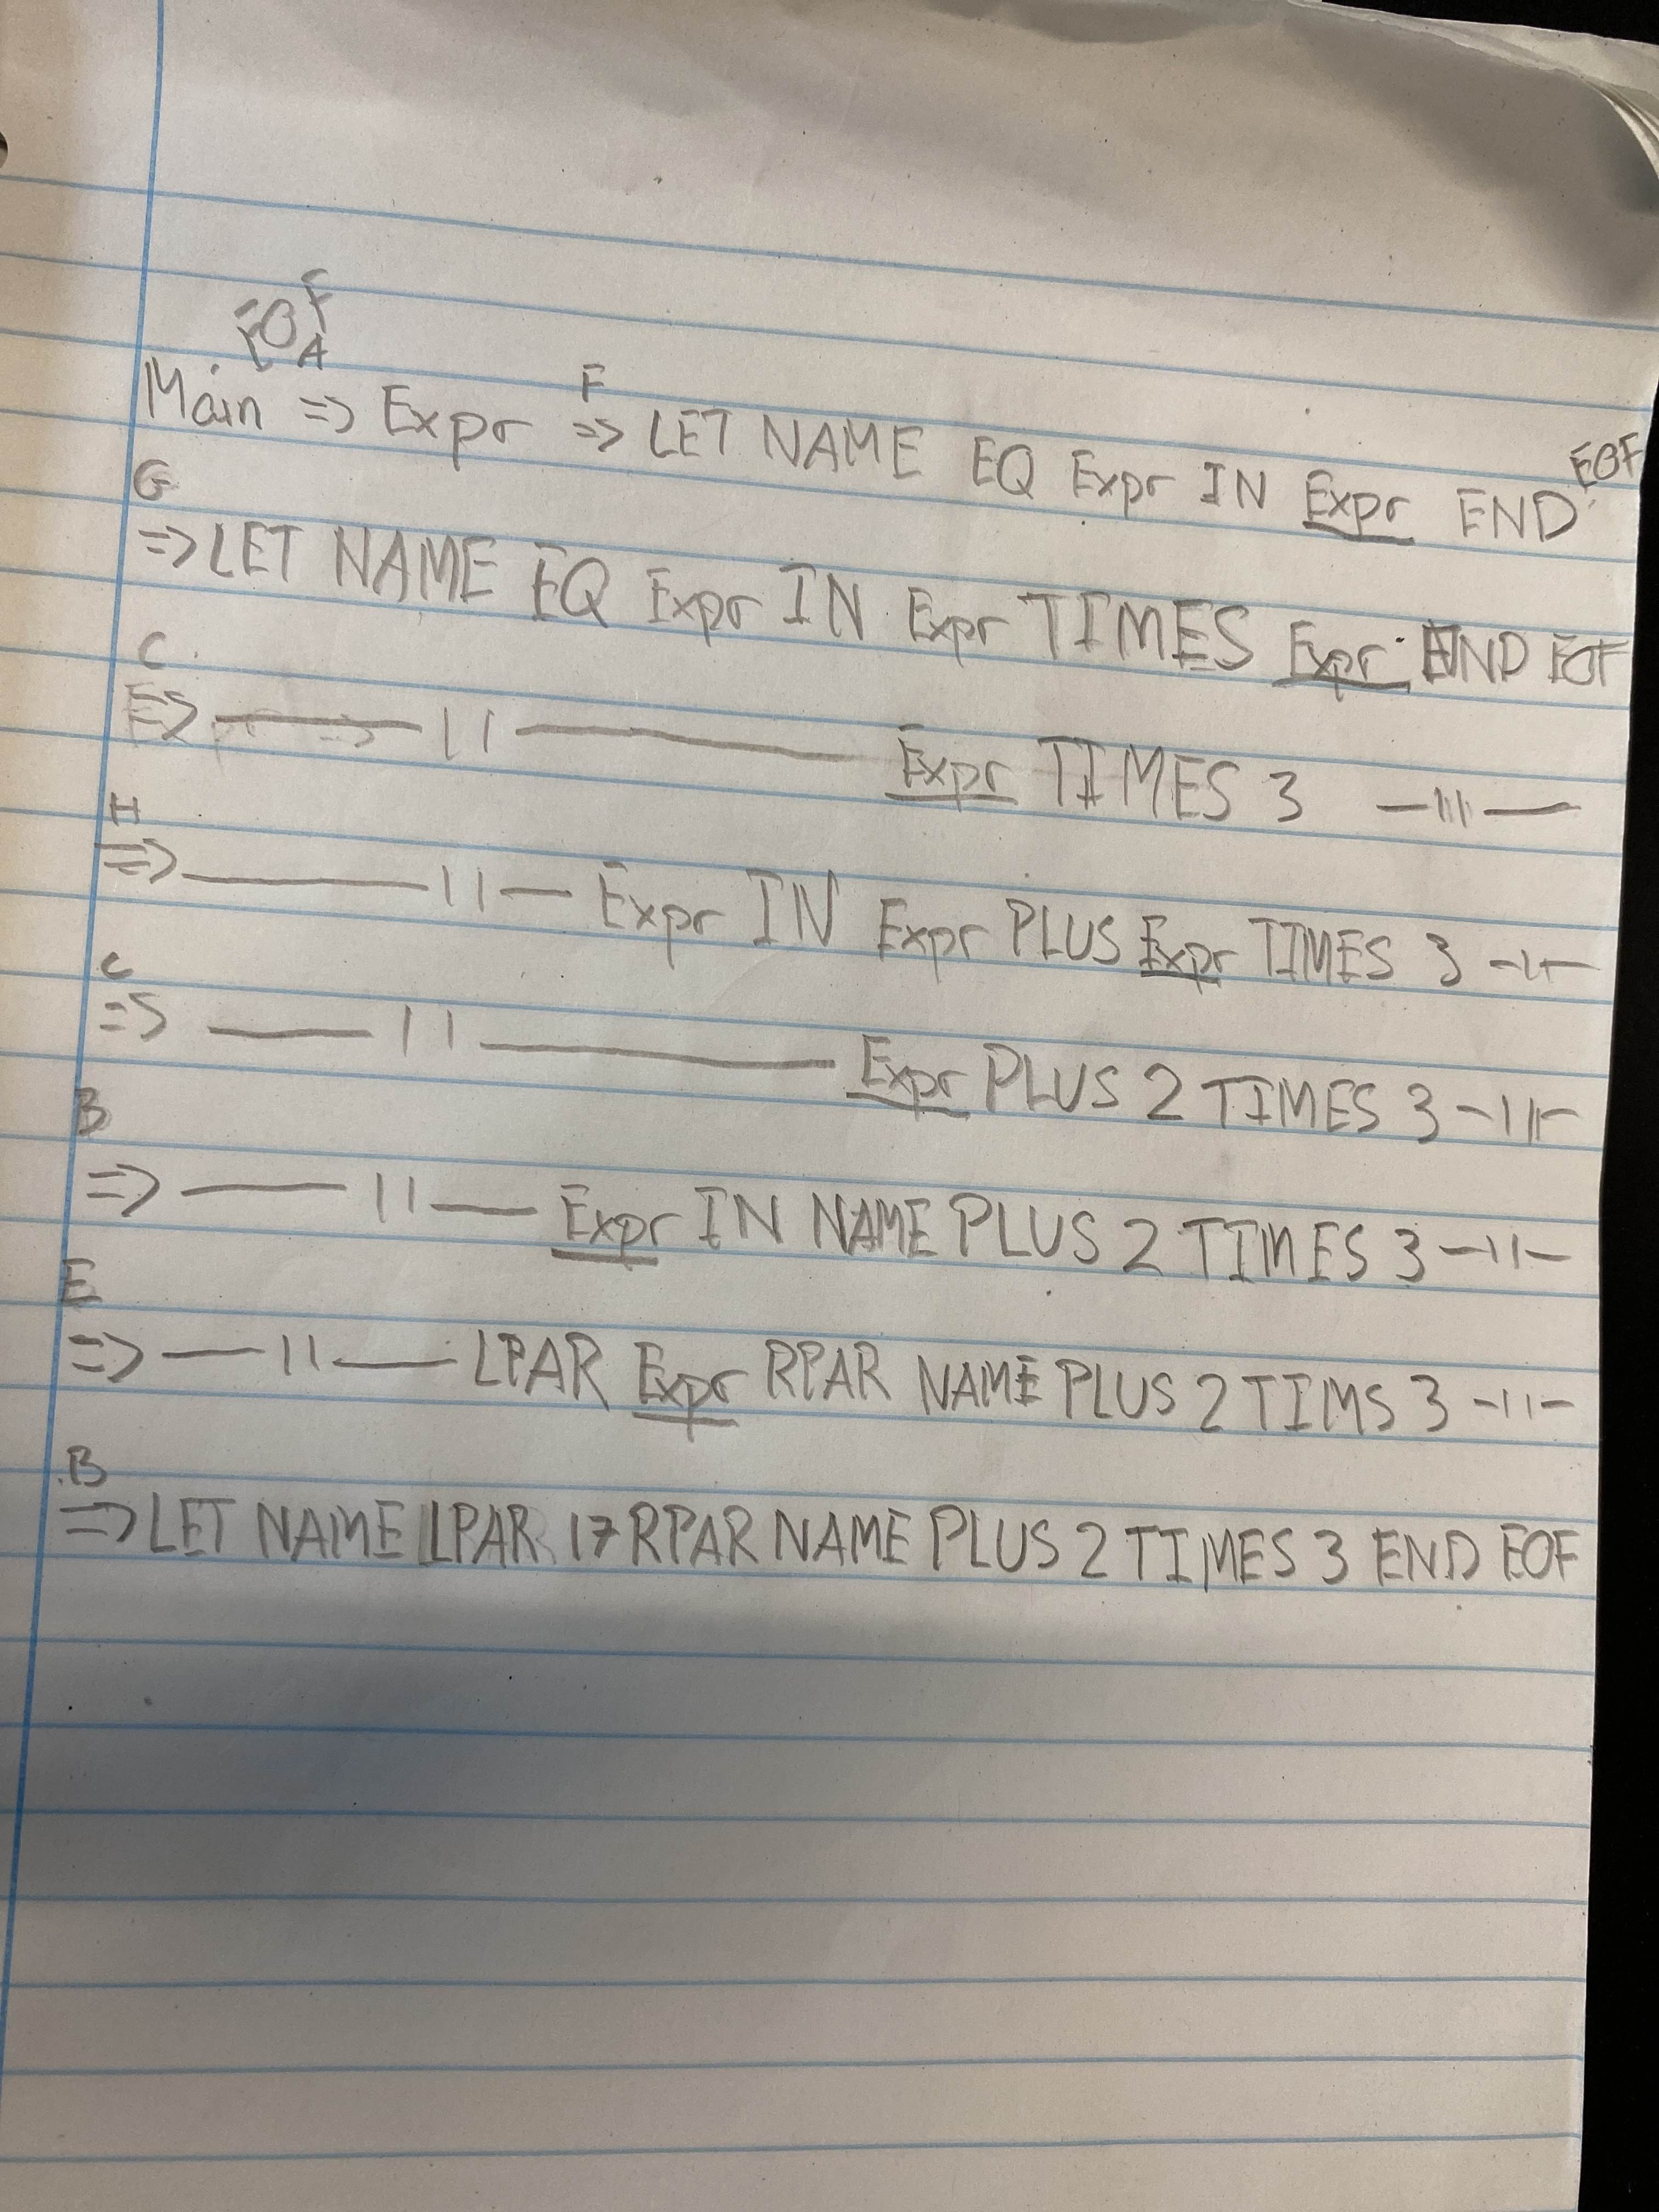 EOF
A F
Main => Expr => LET NAME EQ Expr IN Expr END EOF
G
=> LET NAME EQ Expr IN Expr TIMES Expr END EOF
C
=> —— 11 —— Expr TIMES 3 —11—
H
=> —— 11 — Expr IN Expr PLUS Expr TIMES 3 —11—
C
=> —— 11 —— Expr PLUS 2 TIMES 3 —11—
B
=> —— 11 — Expr IN NAME PLUS 2 TIMES 3 —11—
E
=> — 11 — LPAR Expr RPAR NAME PLUS 2 TIMS 3 —11—
B
=> LET NAME LPAR 17 RPAR NAME PLUS 2 TIMES 3 END EOF